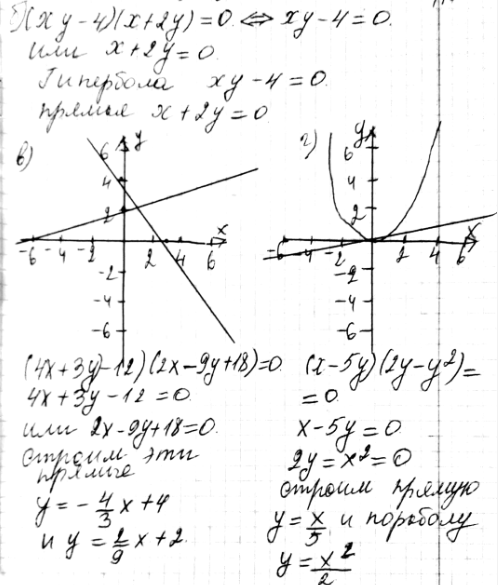 б) (xy-4)(x+2y)=0 ⇔ xy-4=0
или x+2y=0
Гипербола xy-4=0
прямая x+2y=0
в)
y
6
4
2
x
-6 -4 -2 2 4 6
-2
-4
-6
(4x+3y-12)(2x-9y+18)=0
4x+3y-12=0
или 2x-9y+18=0
строим эти
прямые
y=-4/3x+4
и y=2/9x+2
г)
y
6
4
2
x
-6 -4 -2 2 4 6
-2
-4
-6
(x-5y)(2y-y²)=
=0
x-5y=0
2y=x²=0
строим прямую
y=x/5 и параболу
y=x²/2